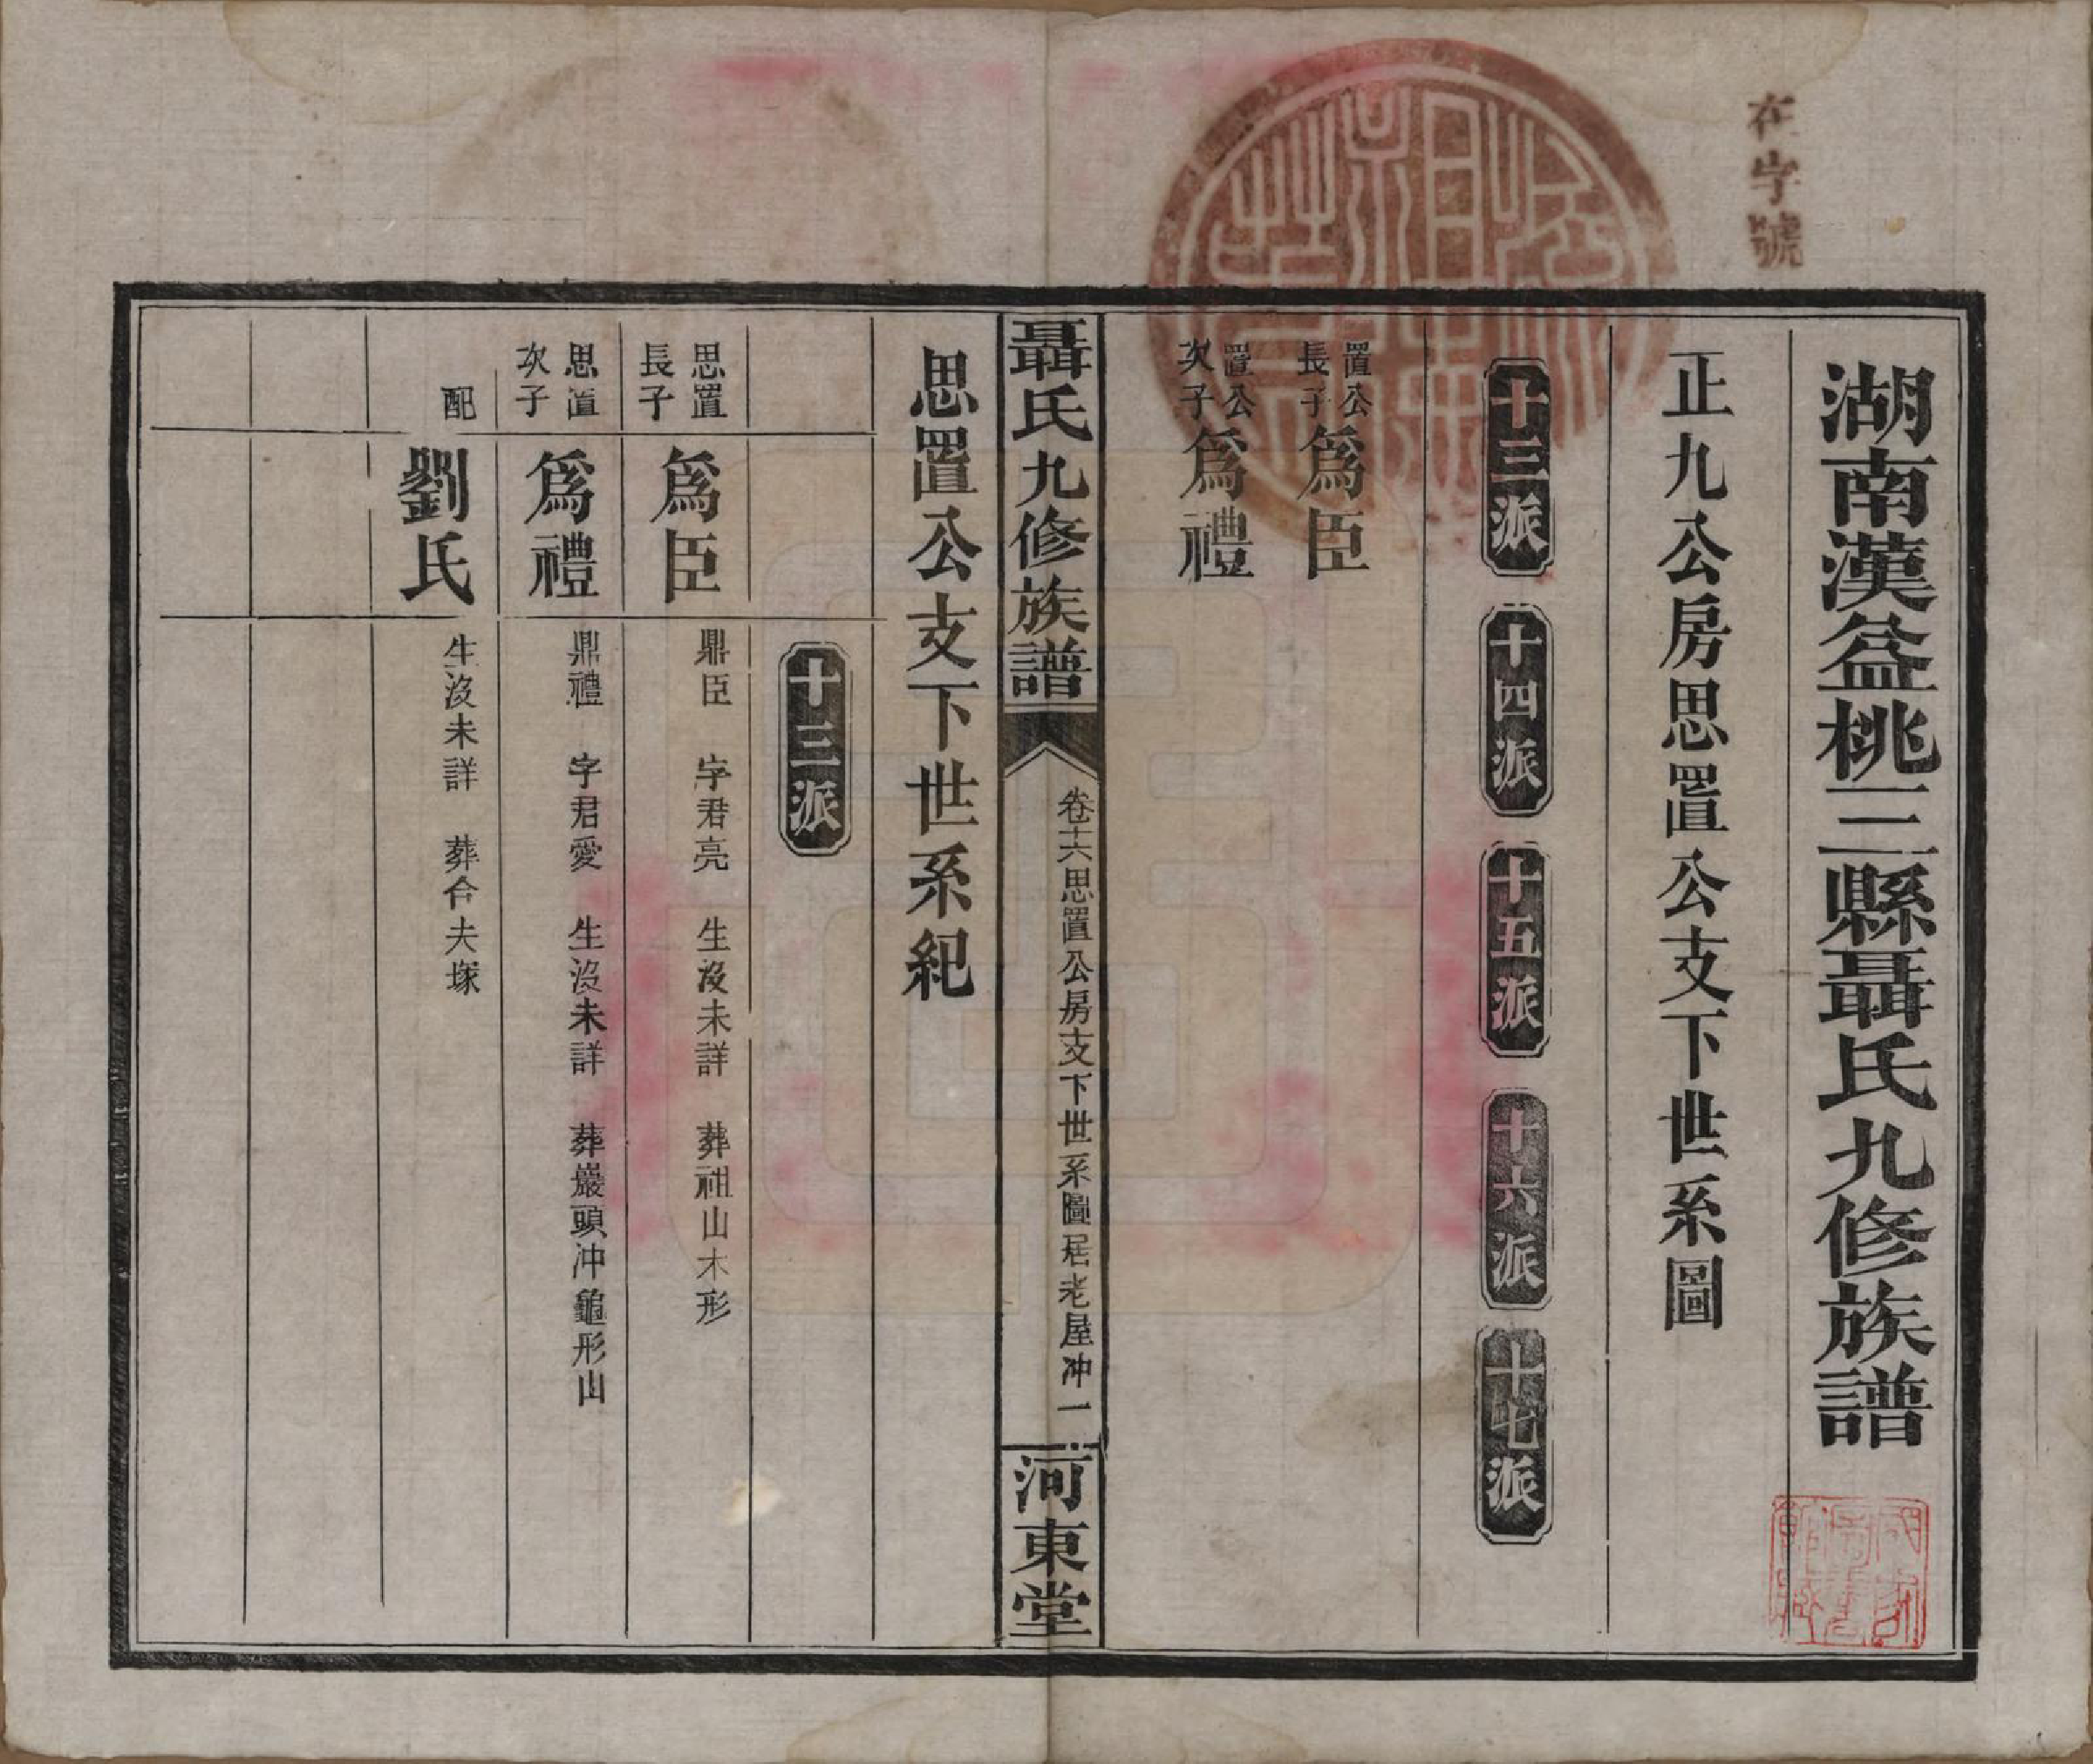 在字號
湖南漢益桃三縣聶氏九修族譜
正九公房思置公支下世系圖
十三派 十四派 十五派 十六派 十七派
置公長子 爲臣
置公次子 爲禮
聶氏九修族譜 卷十六思置公房支下世系圖居老屋冲 一 河東堂
思置公支下世系紀
十三派
思置長子 爲臣 鼎臣 字君亮 生沒未詳 葬祖山木形
思置次子 爲禮 鼎禮 字君愛 生沒未詳 葬巖頭冲龜形山
配 劉氏 生沒未詳 葬合夫塚